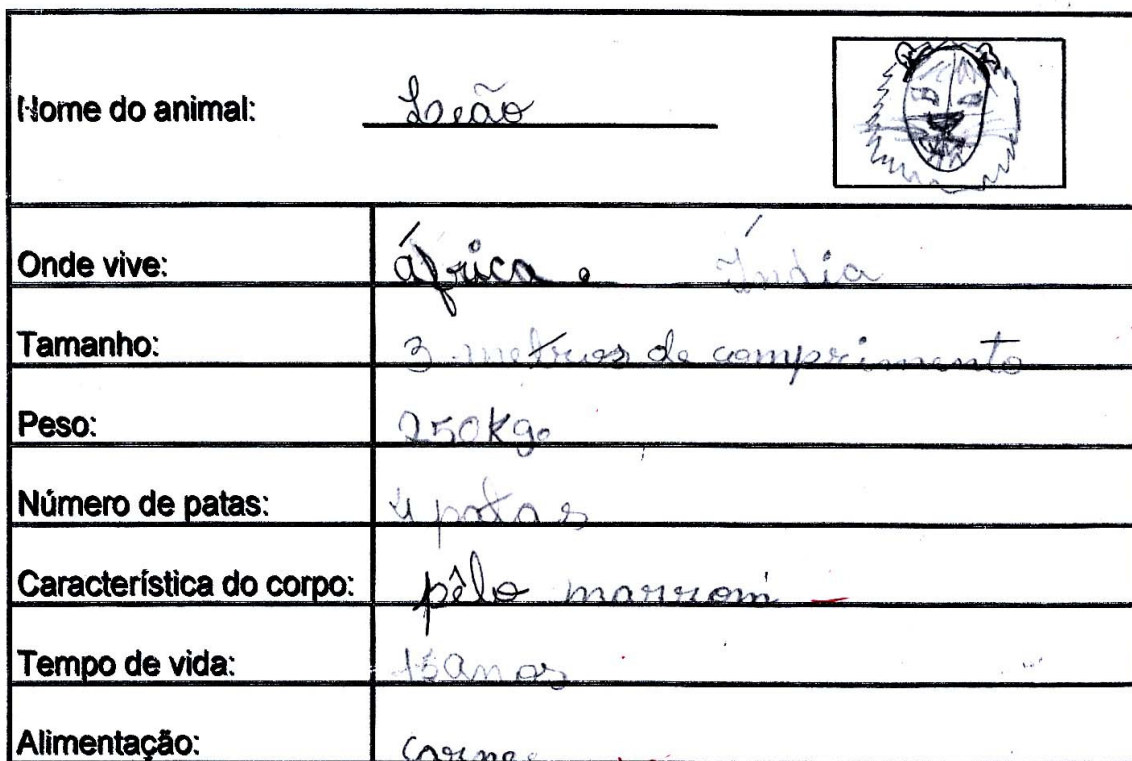 Nome do animal: Leão
Onde vive: áfrica e Índia
Tamanho: 3 metros de comprimento
Peso: 250kg.
Número de patas: 4 patas
Característica do corpo: pêlo marrom
Tempo de vida: 15 anos
Alimentação: carne